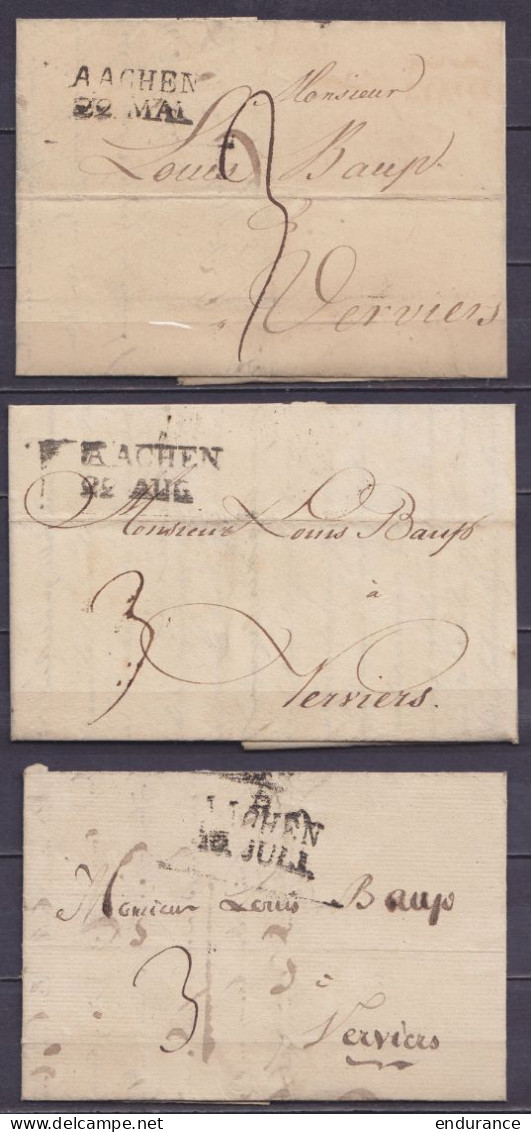 AACHEN
22 MAI
Monsieur
Louis Baup.
3
à
Verviers
AACHEN
22 AUG.
Monsieur Louis Baup
à
3
Verviers.
AACHEN
JULI.
Monsieur Louis Baup
3
à
Verviers
delcampe.net
endurance